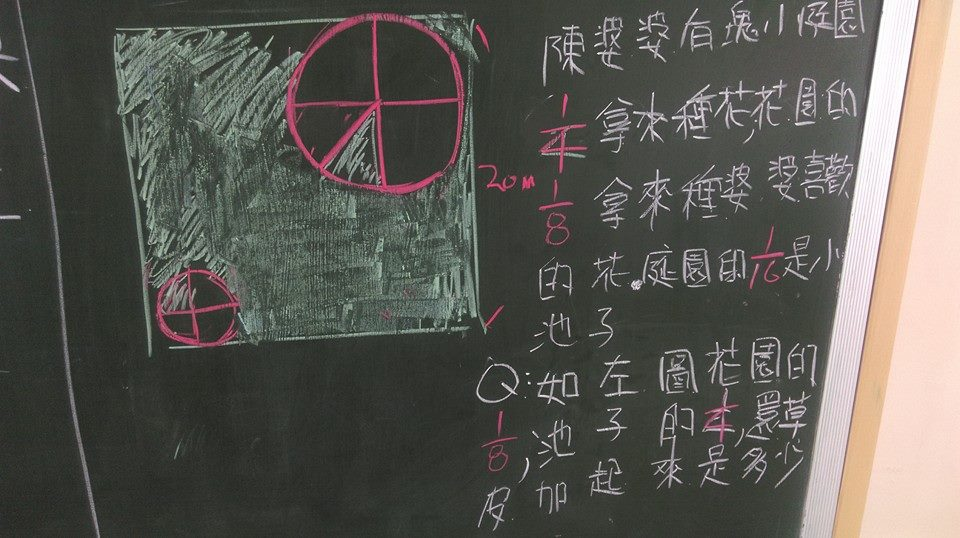 20m
陳婆婆有塊小庭園
1/4 拿來種花,花園的
1/8 拿來種婆婆喜歡
的花.庭園的1/16是小
池子
Q:如左圖花園的
1/8,池子的1/4,還草
皮,加起來是多少